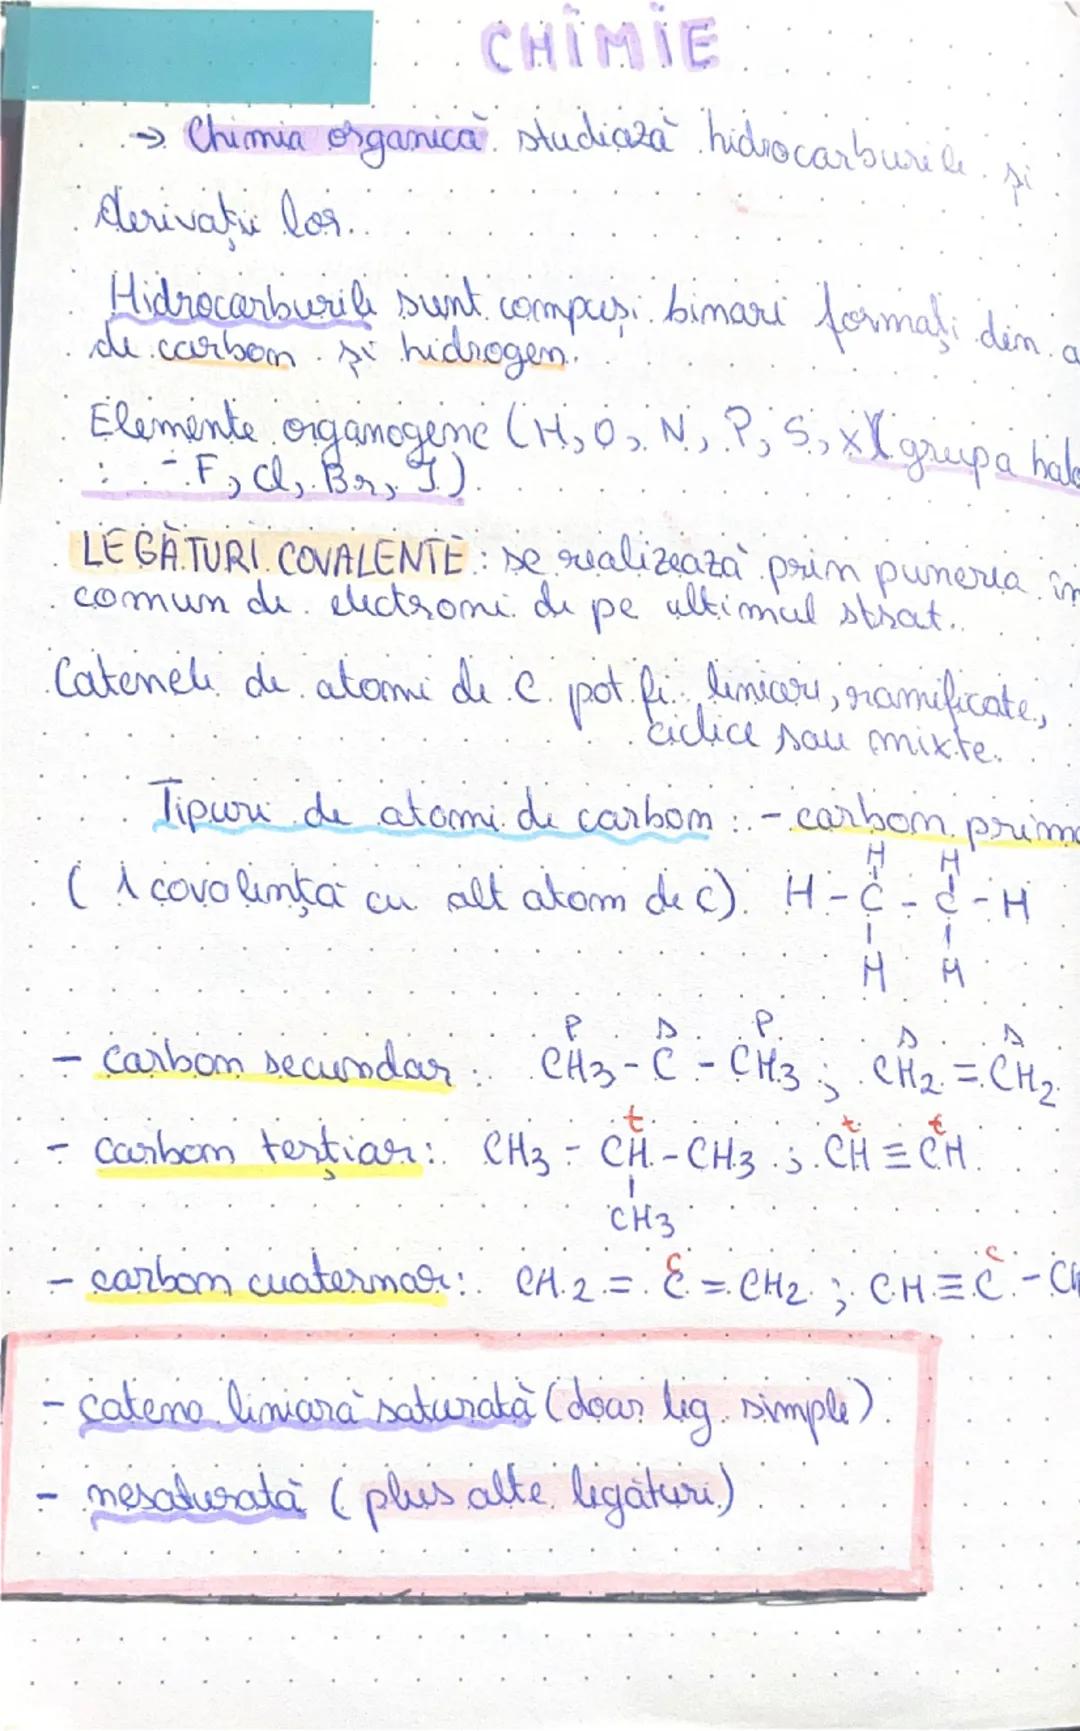 CHIMIE
→ Chimia organică studiază hidrocarburile și
derivații lor.
Hidrocarburile sunt compuși binari formați din a
de carbon și hidrogen.
Elemente organogene (H, O, N, P, S, X (grupa halo
: - F, Cl, Br, I)
LEGĂTURI COVALENTE: se realizează prin punerea în
comun de electroni de pe ultimul strat.
Catenele de atomi de C pot fi: liniare, ramificate,
ciclice sau mixte.
Tipuri de atomi de carbon: - carbon prima
H H
(1 covalență cu alt atom de C). H - C - C - H
H H
P S P S S
- carbon secundar: CH3 - C - CH3 ; CH2 = CH2
t t t
- carbon terțiar: CH3 - CH - CH3 ; CH ≡ CH
CH3
c
- carbon cuaternar: CH2 = C = CH2 ; CH ≡ C - CH
- catena liniară saturată (doar leg. simple)
- nesaturată (plus alte legături)